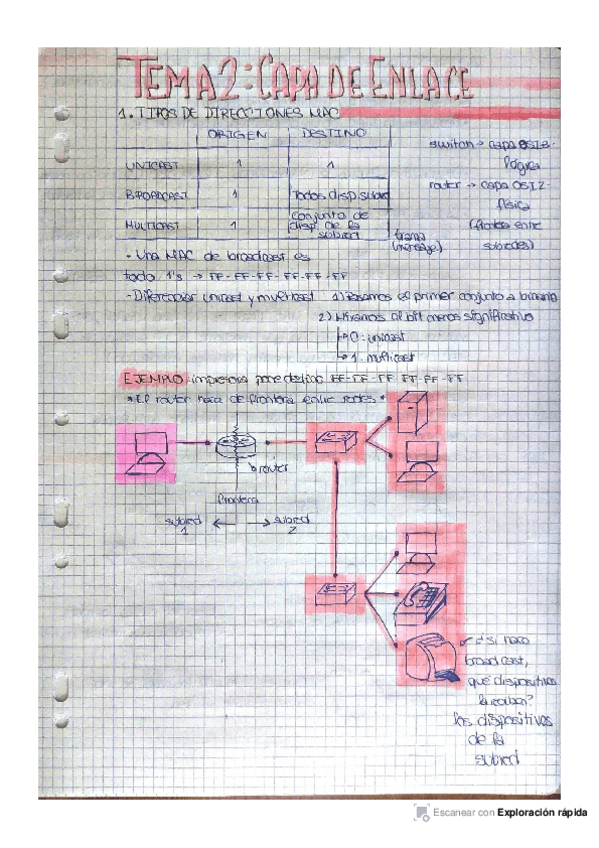 TEMA 2: CAPA DE ENLACE
1. TIPOS DE DIRECCIONES MAC
ORIGEN DESTINO
UNICAST 1 1
BROADCAST 1 Todos disp subred
MULTICAST 1 conjunto de
disp. de la
subred
switch → capa OSI 2-
lógica
router → capa OSI 2-
física
(frontera entre
subredes)
trama
(mensaje)
• Una MAC de broadcast es
todo 1's → FF-FF-FF-FF-FF-FF
- Diferenciar unicast y multicast 1) Pasamos el primer conjunto a binario
2) Miramos al bit menos significativo
→ 0: unicast
→ 1: multicast
EJEMPLO impresora pone destino FF-FF-FF FF-FF-FF
* El router hace de frontera entre redes *
router
frontera
subred ← → subred
1 2
¿si hace
broadcast,
qué dispositivos
la reciben?
los dispositivos
de la
subred
Escanear con Exploración rápida